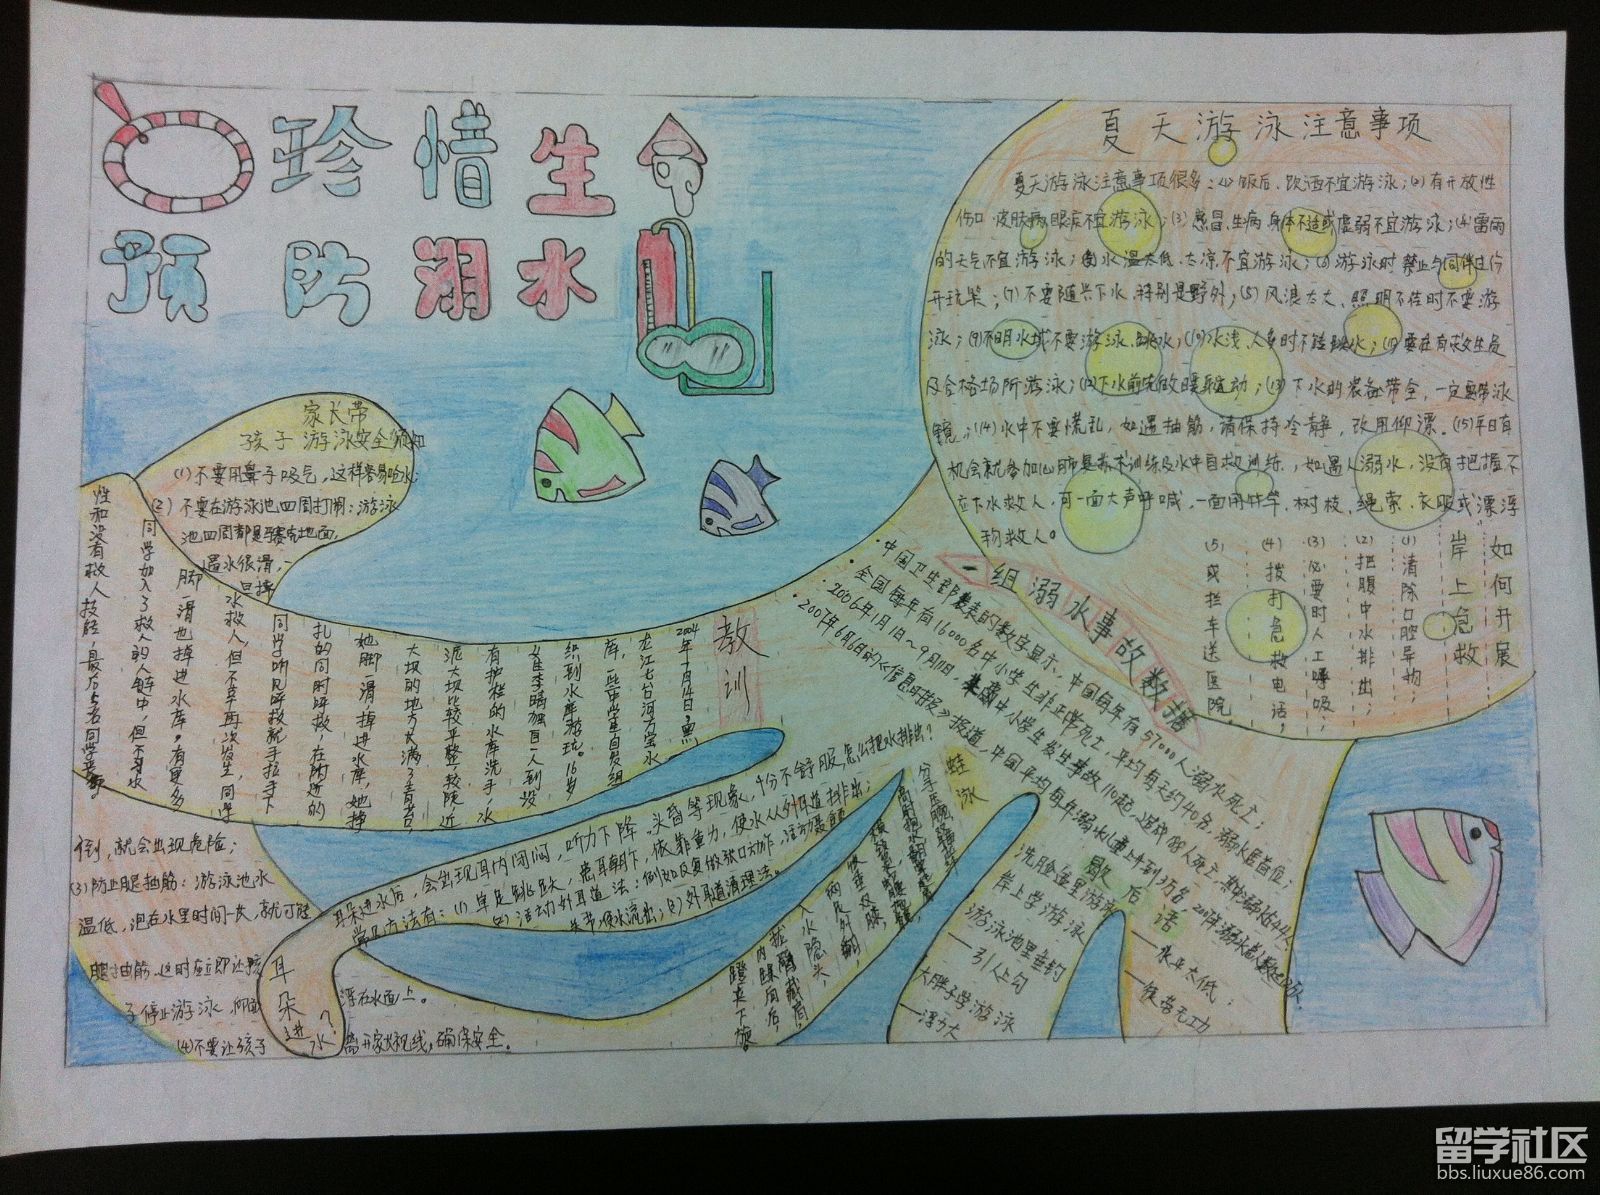 珍惜生命
预防溺水
夏天游泳注意事项
夏天游泳注意事项很多：(1)饭后、饮酒不宜游泳；(2)有开放性
伤口、皮肤病、眼疾不宜游泳；(3)感冒、生病、身体不适或虚弱不宜游泳；(4)雷雨
的天气不宜游泳；(5)水温太低、太凉不宜游泳；(6)游泳时禁止与同伴过份
开玩笑；(7)不要随兴下水，特别是野外；(8)风浪太大、照明不佳时不要游
泳；(9)不明水域不要游泳、跳水；(10)水浅、人多时不能跳水；(11)要在有救生员
及合格场所游泳；(12)下水前先做暖身运动；(13)下水的装备带全，一定要带泳
镜；(14)水中不要慌乱，如遇抽筋，请保持冷静，改用仰漂。(15)平日有
机会就参加心肺复苏术训练及水中自救训练，如遇人溺水，没有把握不
应下水救人，可一面大声呼喊，一面用竹竿、树枝、绳索、衣服或漂浮
物救人。
如何开展
岸上急救
(1)清除口腔异物；
(2)把腹中水排出；
(3)必要时人工呼吸；
(4)拨打急救电话；
(5)或拦车送医院。
家长带
孩子游泳安全须知
(1)不要用鼻子吸气，这样容易呛水；
(2)不要在游泳池四周打闹：游泳
池四周都是马赛克地面，
遇水很滑，一
旦摔
倒，就会出现危险；
(3)防止腿抽筋：游泳池水
温低，泡在水里时间一长，就可能
腿抽筋。这时应立即让孩
子停止游泳，仰面
浮在水面上。
(4)不要让孩子
离开家长视线，确保安全。
教训
2004年7月14日，黑
龙江七台河万宝水
库，一些中学生自发组
织到水库游玩。16岁
女生李晴独自一人到没
有护栏的水库洗手，水
泥大坝比较平整，较陡，近
大坝的地方长满了青苔，
她脚一滑，掉进水库，她掉
扎的同时呼救，在附近的
同学听见呼救就手拉手下
水救人，但不幸再次发生，同学
脚一滑也掉进水库。有更多
同学加入了救人的人链中，但不习水
性和没有救人技能，最后5名同学丧命。
一组溺水事故数据
·中国卫生部发表的数字显示，中国每年有57000人溺水死亡；
·全国每年有16000名中小学生非正常死亡，平均每天约40名，溺水居首位；
·2007年6月6日的《信息时报》报道，中国平均每年溺水儿童上千到3万名
耳朵进水？
耳朵进水后，会出现耳内闭闷，听力下降、头昏等现象，十分不舒服，怎么把水排出？
常见方法有：(1)单足跳跃，患耳朝下，依靠重力，使水从外耳道排出；
蛙泳
歇后语
洗脸盆里游泳
——水平太低；
岸上学游泳
——徒劳无功
游泳池里垂钓
——引人上勾
大胖子学游泳
——浮力大
留学社区
bbs.liuxue86.com